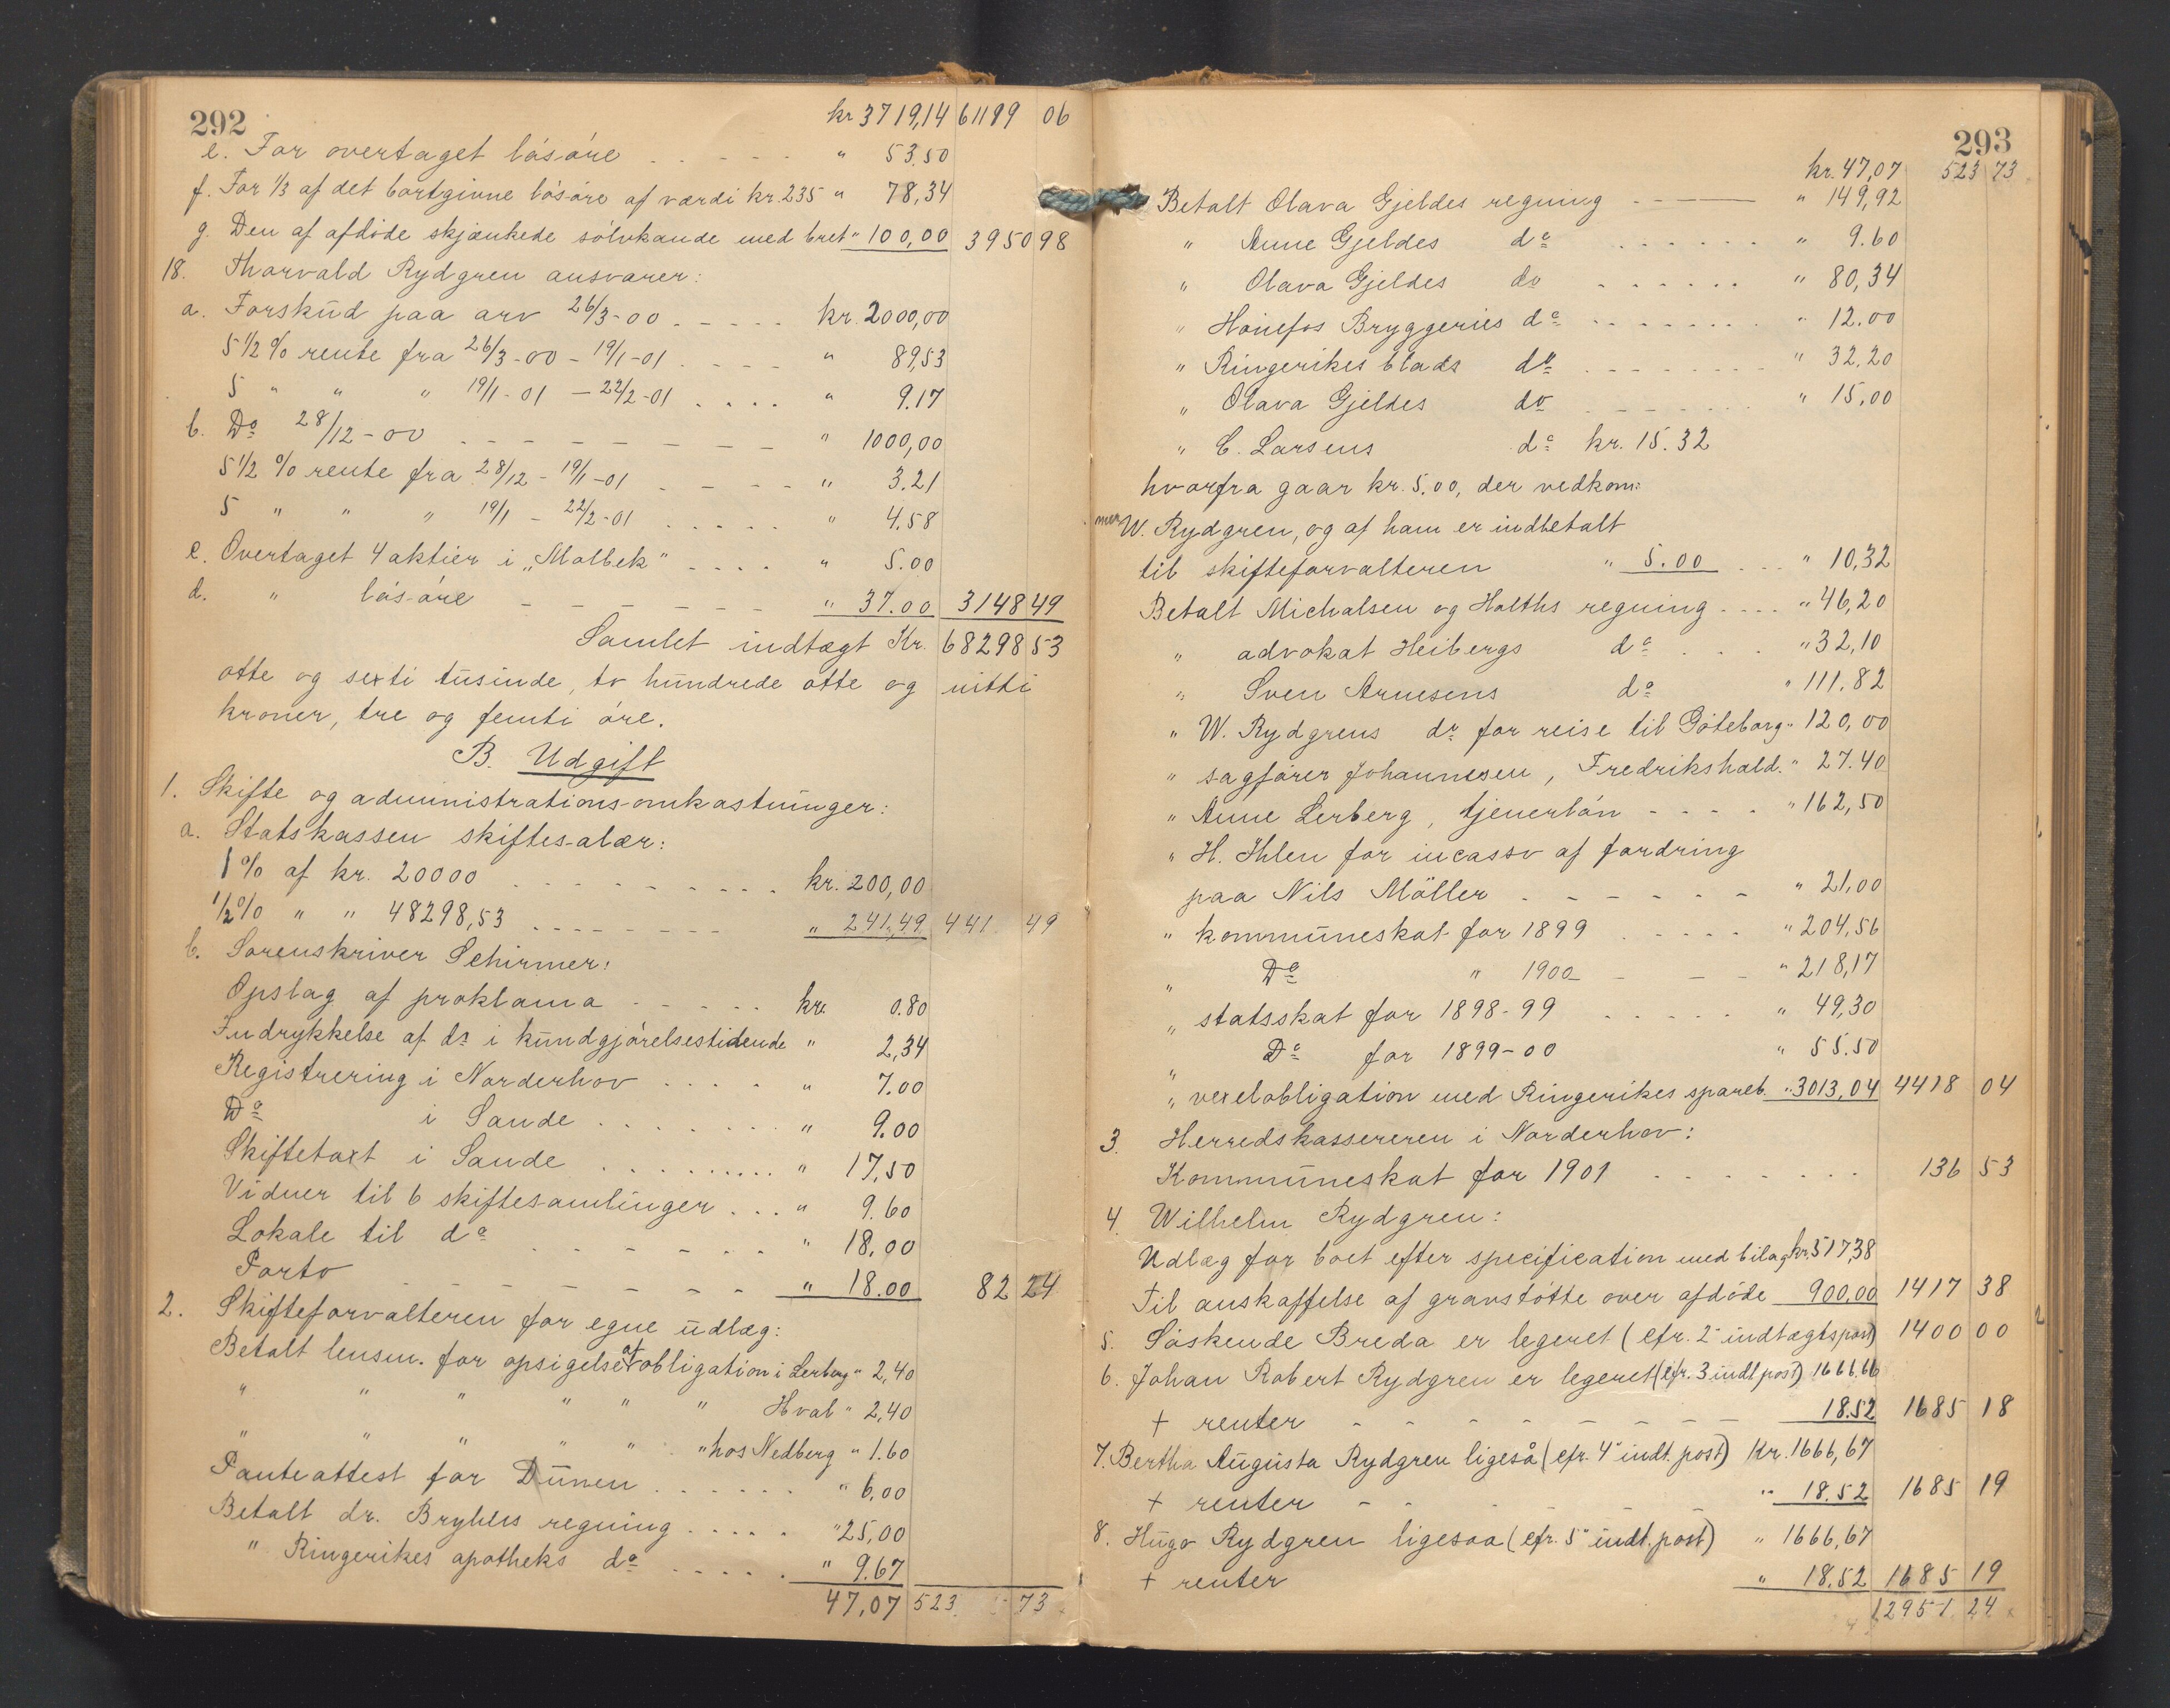 292
kr 3719,14 61199 06
e. For overtaget løsøre . . . . . " 53.50
f. For 1/3 af det bortgivne løsøre af værdi kr. 235 " 78,34
g. Den af afdøde skjænkede sølvkande med bret " 100,00 3950 98
18. Thorvald Rydgren ansvarer:
a. Forskud paa arv 26/3-00 . . . . kr. 2000,00
5 1/2 % rente fra 26/3-00 - 19/1-01 . . . . " 89,53
5 " " " 19/1-01 - 22/2-01 . . . . " 9.17
b. Do 28/12-00 - - - - - - - " 1000,00
5 1/2 % rente fra 28/12 - 19/1-01 - - - - " 3.21
5 " " " 19/1 - 22/2-01 . . . . . " 4.58
c. Overtaget 4 aktier i „Molbek" . . . . " 5.00
d. " løs-øre - - - - - - " 37.00 3148 49
Samlet indtægt Kr. 68298 53
otte og sexti tusinde, to hundrede otte og nitti
kroner, tre og femti øre.
B. Udgift
1. Skifte og administrations-omkostninger:
a. Statskassen skiftesalær:
1 % af kr. 20000 . . . . . . . . kr. 200,00
1/2 % " " 48298,53 . . . . . . . " 241,49 441. 49
b. Sorenskriver Schirmer:
Opslag af proklama . . . . . kr. 0.80
Indrykkelse af do i kundgjørelsestidende " 2,34
Registrering i Norderhov . . . . " 7.00
Do i Sande . . . . . . . " 9.00
Skiftetaxt i Sande . . . . . . . . . " 17,50
Vidner til 6 skiftesamlinger . . . " 9.60
Lokale til do . . - - - . . " 18.00
Porto - - - - - - - " 18.00 82 24
2. Skifteforvalteren for egne udlæg:
Betalt lensm. for opsigelse af obligation i Lerberg " 2,40
" " " " " " Hval " 2,40
" " " " " " hos Nedberg " 1.60
Panteattest for Dünen . . . . . . " 6,00
Betalt dr. Bryhns regning . . . . . " 25,00
" Ringerikes apotheks do . . . . . " 9.67
47,07 523 73
293
kr. 47,07 523 73
Betalt Olava Gjeldes regning - - - - " 149,92
" Anne Gjeldes do . . . . . . " 9.60
" Olava Gjeldes do - . . . . . " 80,34
" Hønefos Bryggeries do . . . . . . . . " 12.00
" Ringerikes blads do . . . . . . . " 32.20
" Olava Gjeldes do - . . . . . . " 15,00
" C. Larsens do kr. 15.32
hvorfra gaar kr. 5.00, der vedkom:
mer W. Rydgren, og af ham er indbetalt
til skifteforvalteren " 5.00 . . . " 10,32
Betalt Michalsen og Holths regning . . . . " 46,20
" advokat Heibergs do . . . " 32,10
" Sven Arnesens do " 111.82
" W. Rydgrens do for reise til Gøteborg " 120,00
" sagfører Johannesen, Fredrikshald. " 27.40
" Anne Lerberg, tjenerløn - - - - " 162,50
" H. Ihlen for incasso af fordring
paa Nils Møller . - - - - - " 21,00
" kommuneskat for 1899 . . . . . " 204,56
" Do " 1900 - - - " 218,17
" statsskat for 1898-99 . . . . . " 49,30
" Do for 1899-00 " 55.50
" vexelobligation med Ringerikes spareb. " 3013,04 4418 04
3. Herredskassereren i Norderhov:
Kommuneskat for 1901 . . . . . . . 136 53
4. Wilhelm Rydgren:
Udlæg for boet efter specification med bilag kr. 517,38
Til anskaffelse af gravstøtte over afdøde 900,00 1417 38
5. Søskende Breda er legeret (cfr. 2" indtægtspost) 1400 00
6. Johan Robert Rydgren er legeret (cfr. 3 indt post) 1666.66
+ renter - - - - - - - - 18.52 1685 18
7. Bertha Augusta Rydgren ligeså (cfr. 4" indt. post) Kr. 1666,67
+ renter - - - - - - " 18.52 1685 19
8. Hugo Rydgren ligesaa (cfr. 5" indt. post) " 1666,67
+ renter " 18.52 1685 19
12951 24